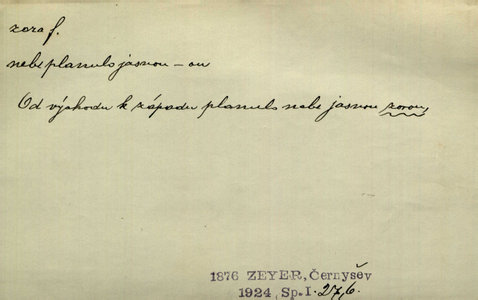 zora f.
nebe planulo jasnou – ou
Od východu k západu planulo nebe jasnou zorou,
1876 ZEYER, Černyšev
1924, Sp. I. 276.